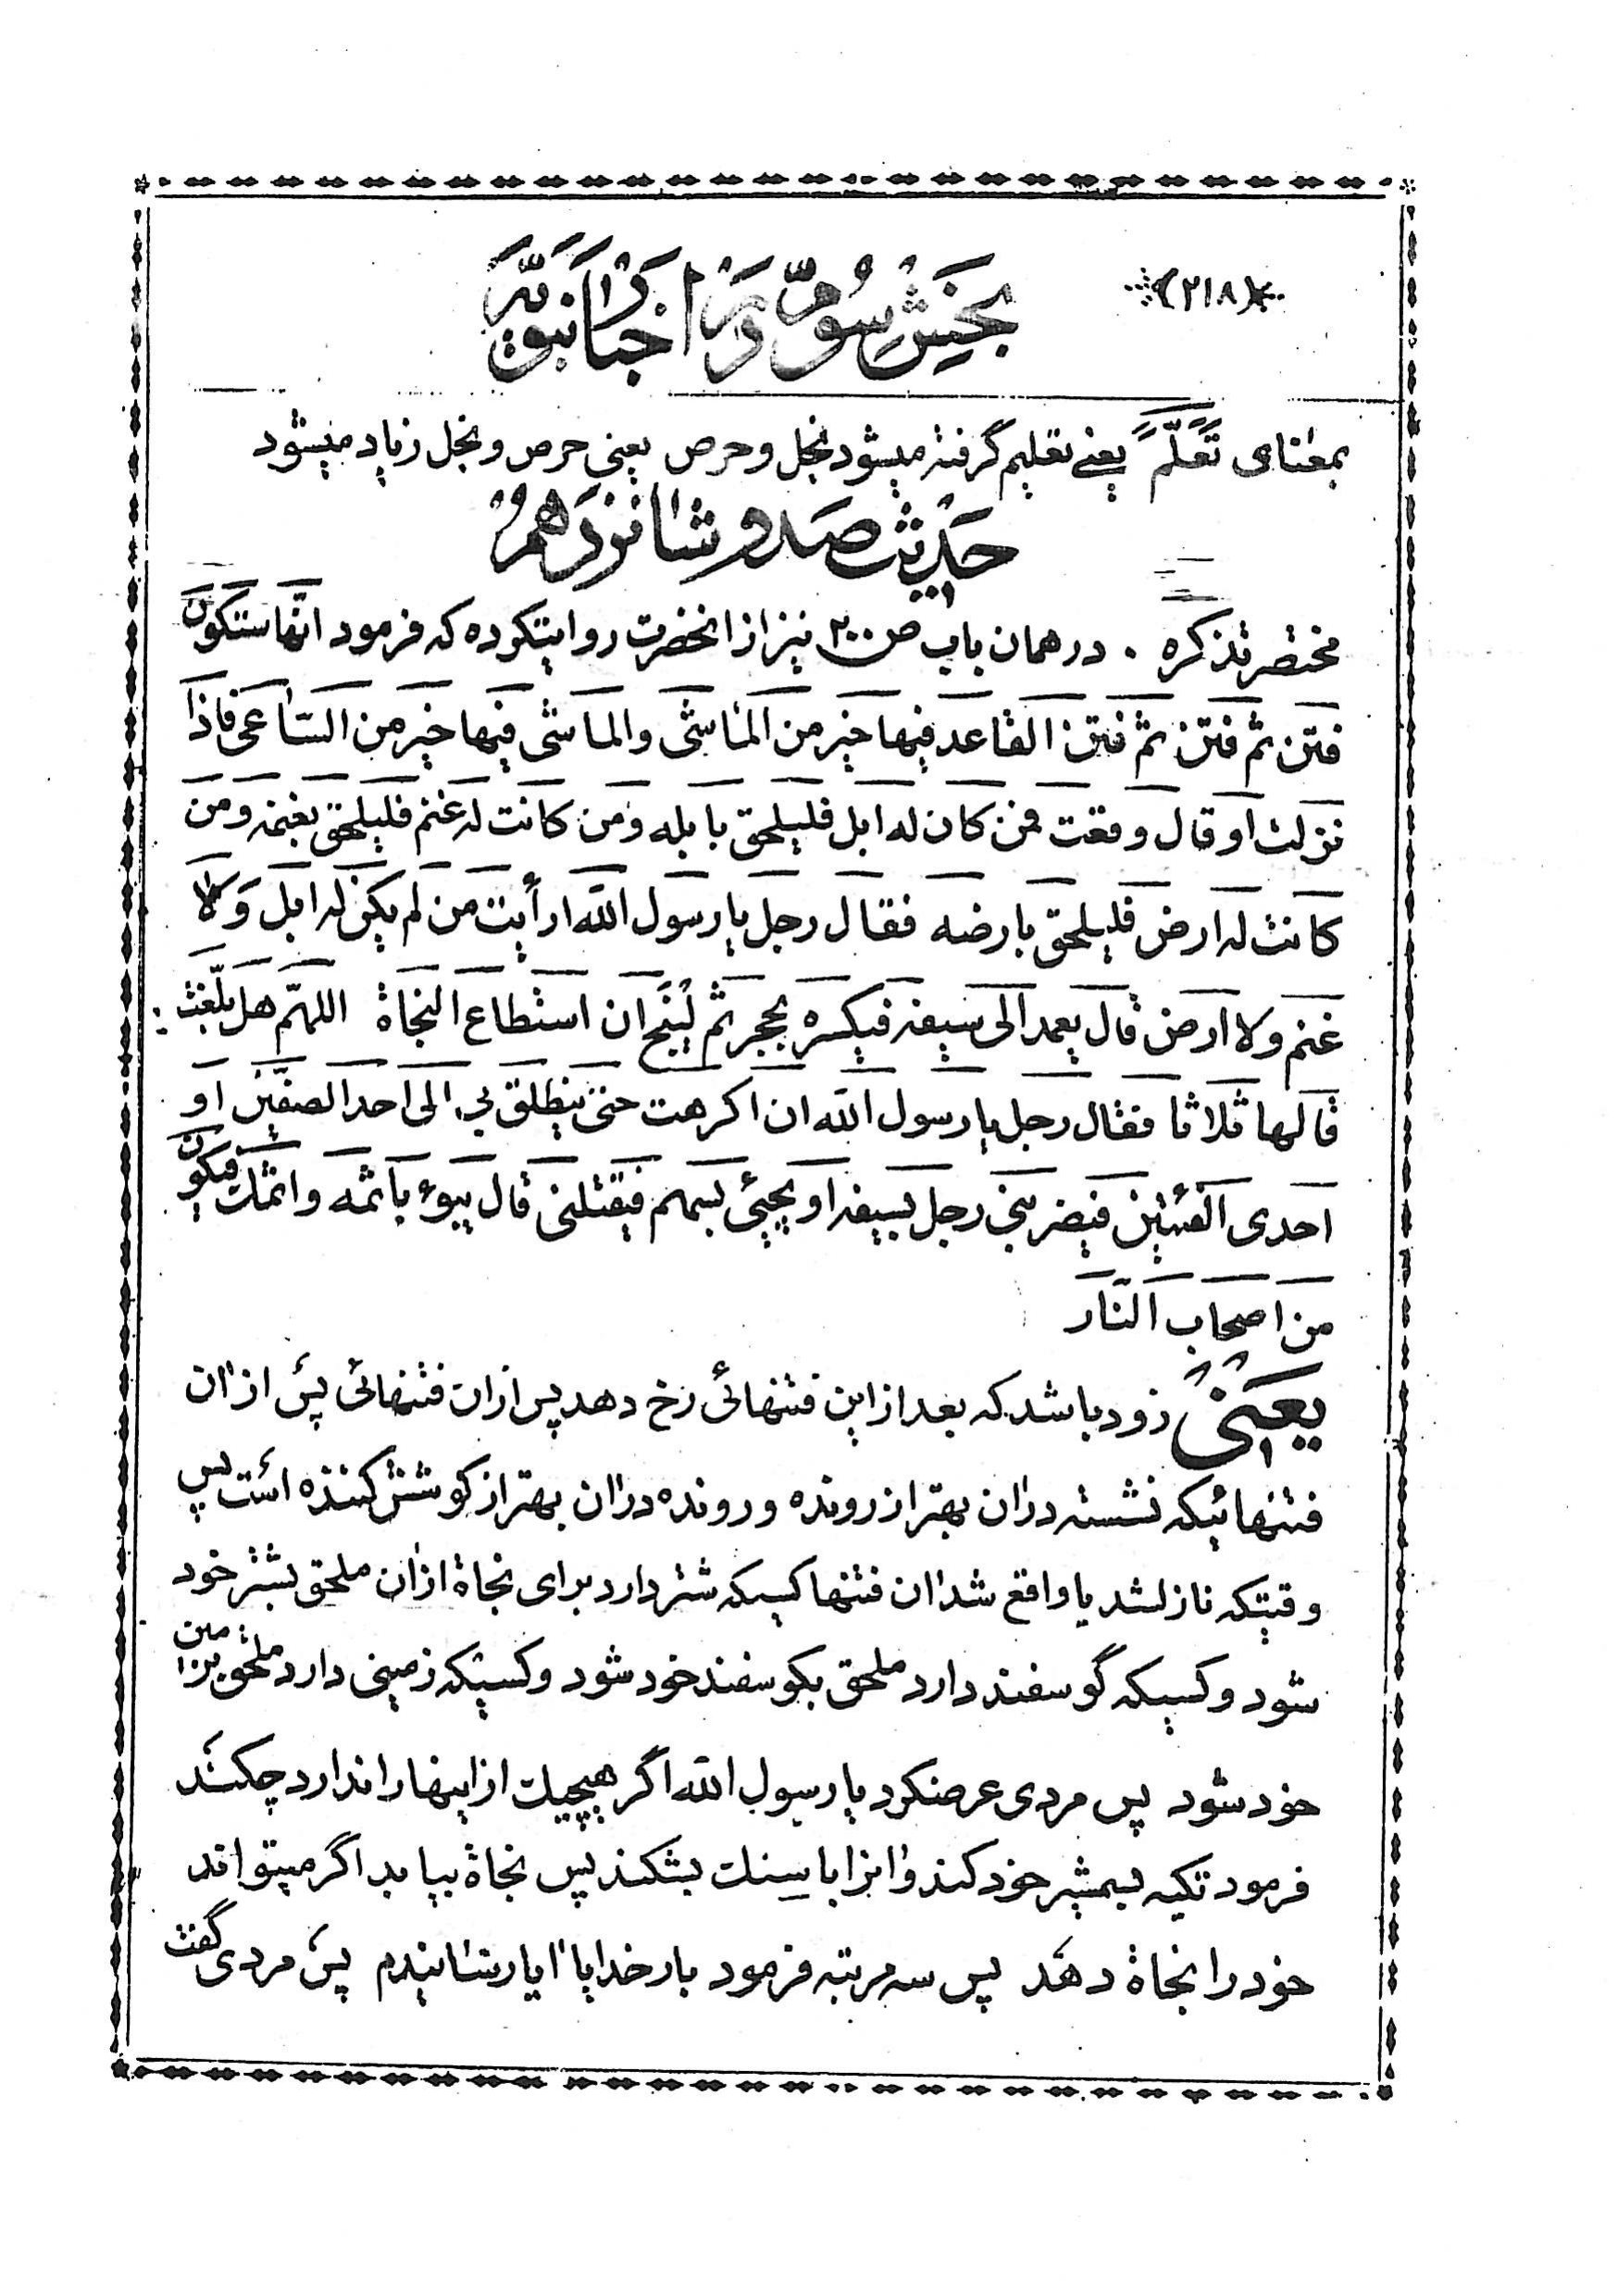 (۲۱۸)
بخش سوّم در اخبار نبویّه
بمعنای تَعَلَّمَ یعنی تعلیم گرفته میشود بخل و حرص یعنی حرص و بخل زیاد میشود
حَدیث صَد و شانزدَهم
مختصر تذکره . در همان باب ص ۲۰۰ نیز از انحضرت روایتکرده که فرمود انّها ستکون
فتن ثم فتن ثم فتن القاعد فیها خیر من الماشی والماشی فیها خیر من السّاعی فاذا
نزلت او قال وقعت فمن کان له ابل فلیلحق بابله ومن کانت له غنم فلیلحق بغنمه ومن
کانت له ارض فلیلحق بارضه فقال رجل یا رسول الله ارأیت من لم یکن له ابل وَلا
غنم ولا ارض قال یعمد الی سیفه فیکسره بحجر ثم لینج ان استطاع النجاة اللهمّ هل بلّغت :
قالها ثلاثا فقال رجل یا رسول الله ان اکرهت حتی ینطلق بی الی احد الصفّین او
احدی الفئتین فیضربنی رجل بسیفه او یجیئ بسهم فیقتلنی قال یبوء باثمه واثمک فیکون
من اصحاب النّار
یعَنی زود باشد که بعد از این فتنهائی رخ دهد پس ازان فتنهائی پس ازان
فتنهائیکه نشسته دران بهتر از رونده و رونده دران بهتر از کوشش کننده است پس
وقتیکه نازلشد یا واقع شد ان فتنها کسیکه شتر دارد برای نجاة ازان ملحق بشتر خود
شود و کسیکه گوسفند دارد ملحق بکوسفند خود شود و کسیکه زمینی دارد ملحق بزمین
خود شود پس مردی عرضکرد یا رسول الله اگر هیچیک از اینها را ندارد چکند
فرمود تکیه بشمشیر خود کند و انرا با سنک بشکند پس نجاة بیابد اگر میتواند
خود را نجاة دهد پس سه مرتبه فرمود بار خدایا ایا رسانیدم پس مردی گفت